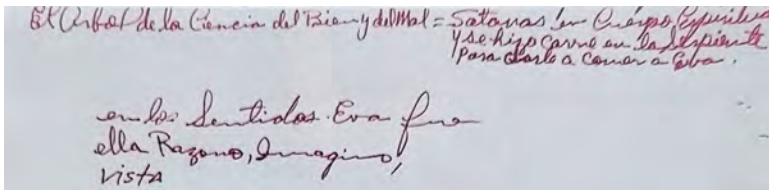 El Arbol de la Ciencia del Bien y del Mal = Satanas en Cuerpo Espiritual
y se hizo carne en la Serpiente
para darle a comer a Eva.
en los Sentidos. Eva fue
ella Razono, Imagino,
vista